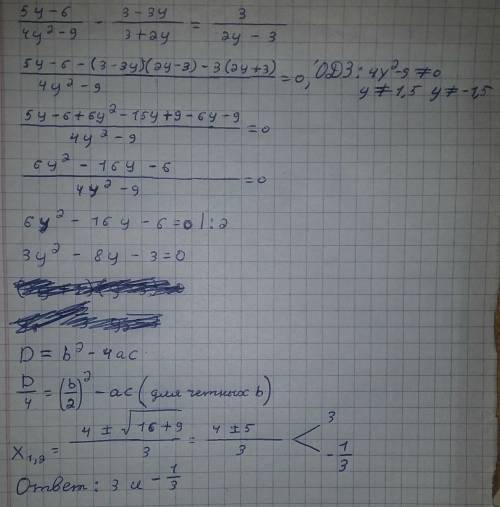 (5y-6)/(4y²-9) - (3-3y)/(3+2y) = 3/(2y-3)
(5y-6-(3-3y)(2y-3)-3(2y+3))/(4y²-9) = 0, ОДЗ: 4y²-9≠0
y≠1,5 y≠-1,5
(5y-6+6y²-15y+9-6y-9)/(4y²-9) = 0
(6y²-16y-6)/(4y²-9) = 0
6y²-16y-6=0 |:2
3y²-8y-3=0
D = b²-4ac
D/4 = (b/2)²-ac (для четных b)
x₁,₂ = (4±√(16+9))/3 = (4±5)/3 < 3 -1/3
Ответ: 3 и -1/3